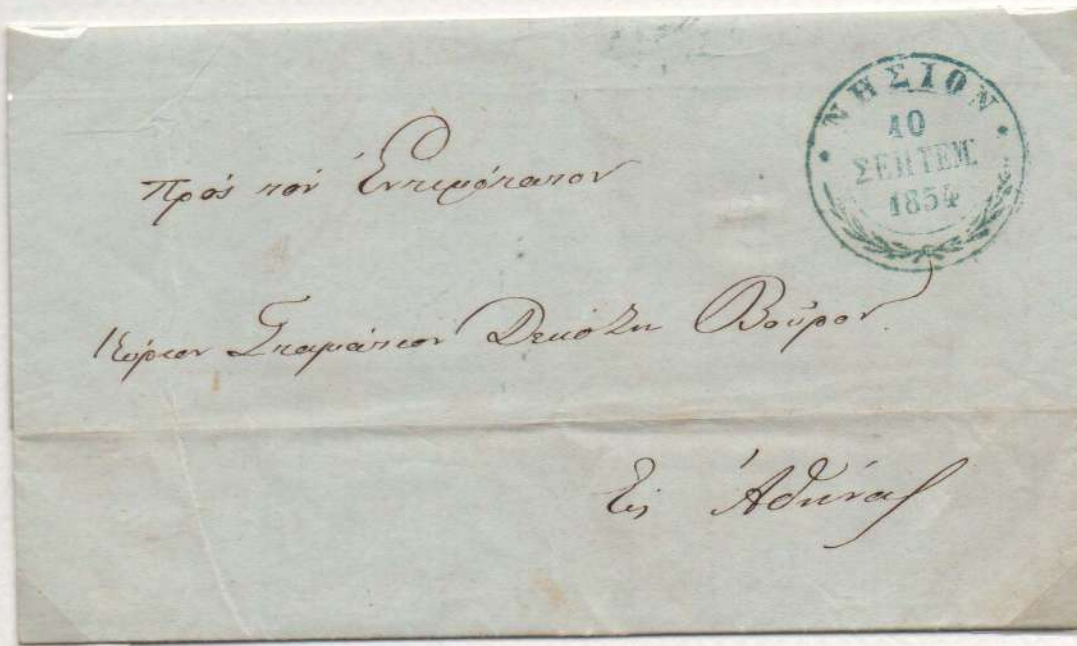 ΝΗΣΙΟΝ
10
ΣΕΠΤΕΜ.
1854
Πρὸς τὸν Ἐντιμότατον
Κύριον Σταμάτιον Δεκόζη Βοῦρον
Εἰς Ἀθήνας